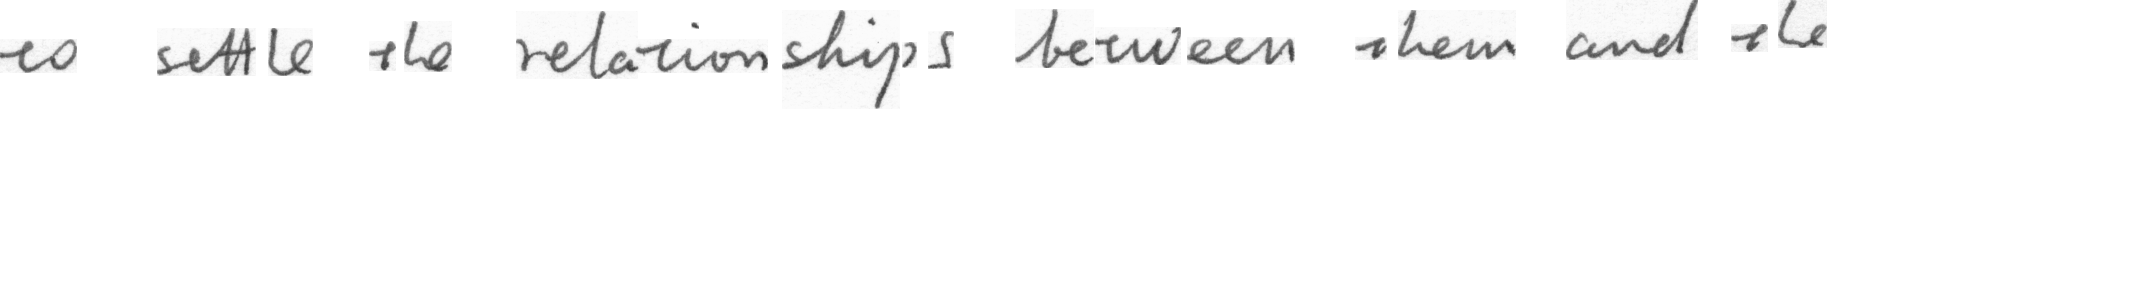 to settle the relationships between them and the